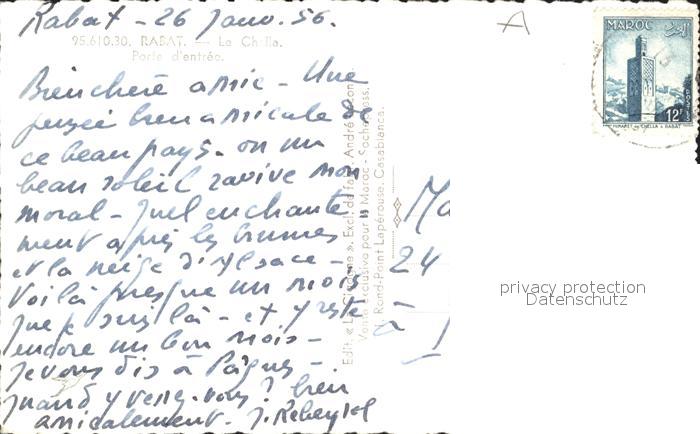 Rabat - 26 Janv. 56.
95.610.30. RABAT. — Le Chella.
Porte d'entrée.
Bien chère amie - Une
pensée bien amicale de
ce beau pays - où un
beau soleil ravive mon
moral - quel enchante
ment après les brumes
et la neige d'Alsace -
Voilà presque un mois
que je suis là - et y reste
encore un bon mois -
je vous dis à Pâques -
quand y venez-vous ? bien
amicalement. J. Rebeyrol
Edit. « La Cigogne ». Excl. de fab.
Vente exclusive pour le Maroc - Sochepress.
Rond-Point Lapérouse, Casablanca.
24
à
A
MAROC المغرب
POSTES
12F
MINARET DU CHELLA A RABAT
privacy protection
Datenschutz